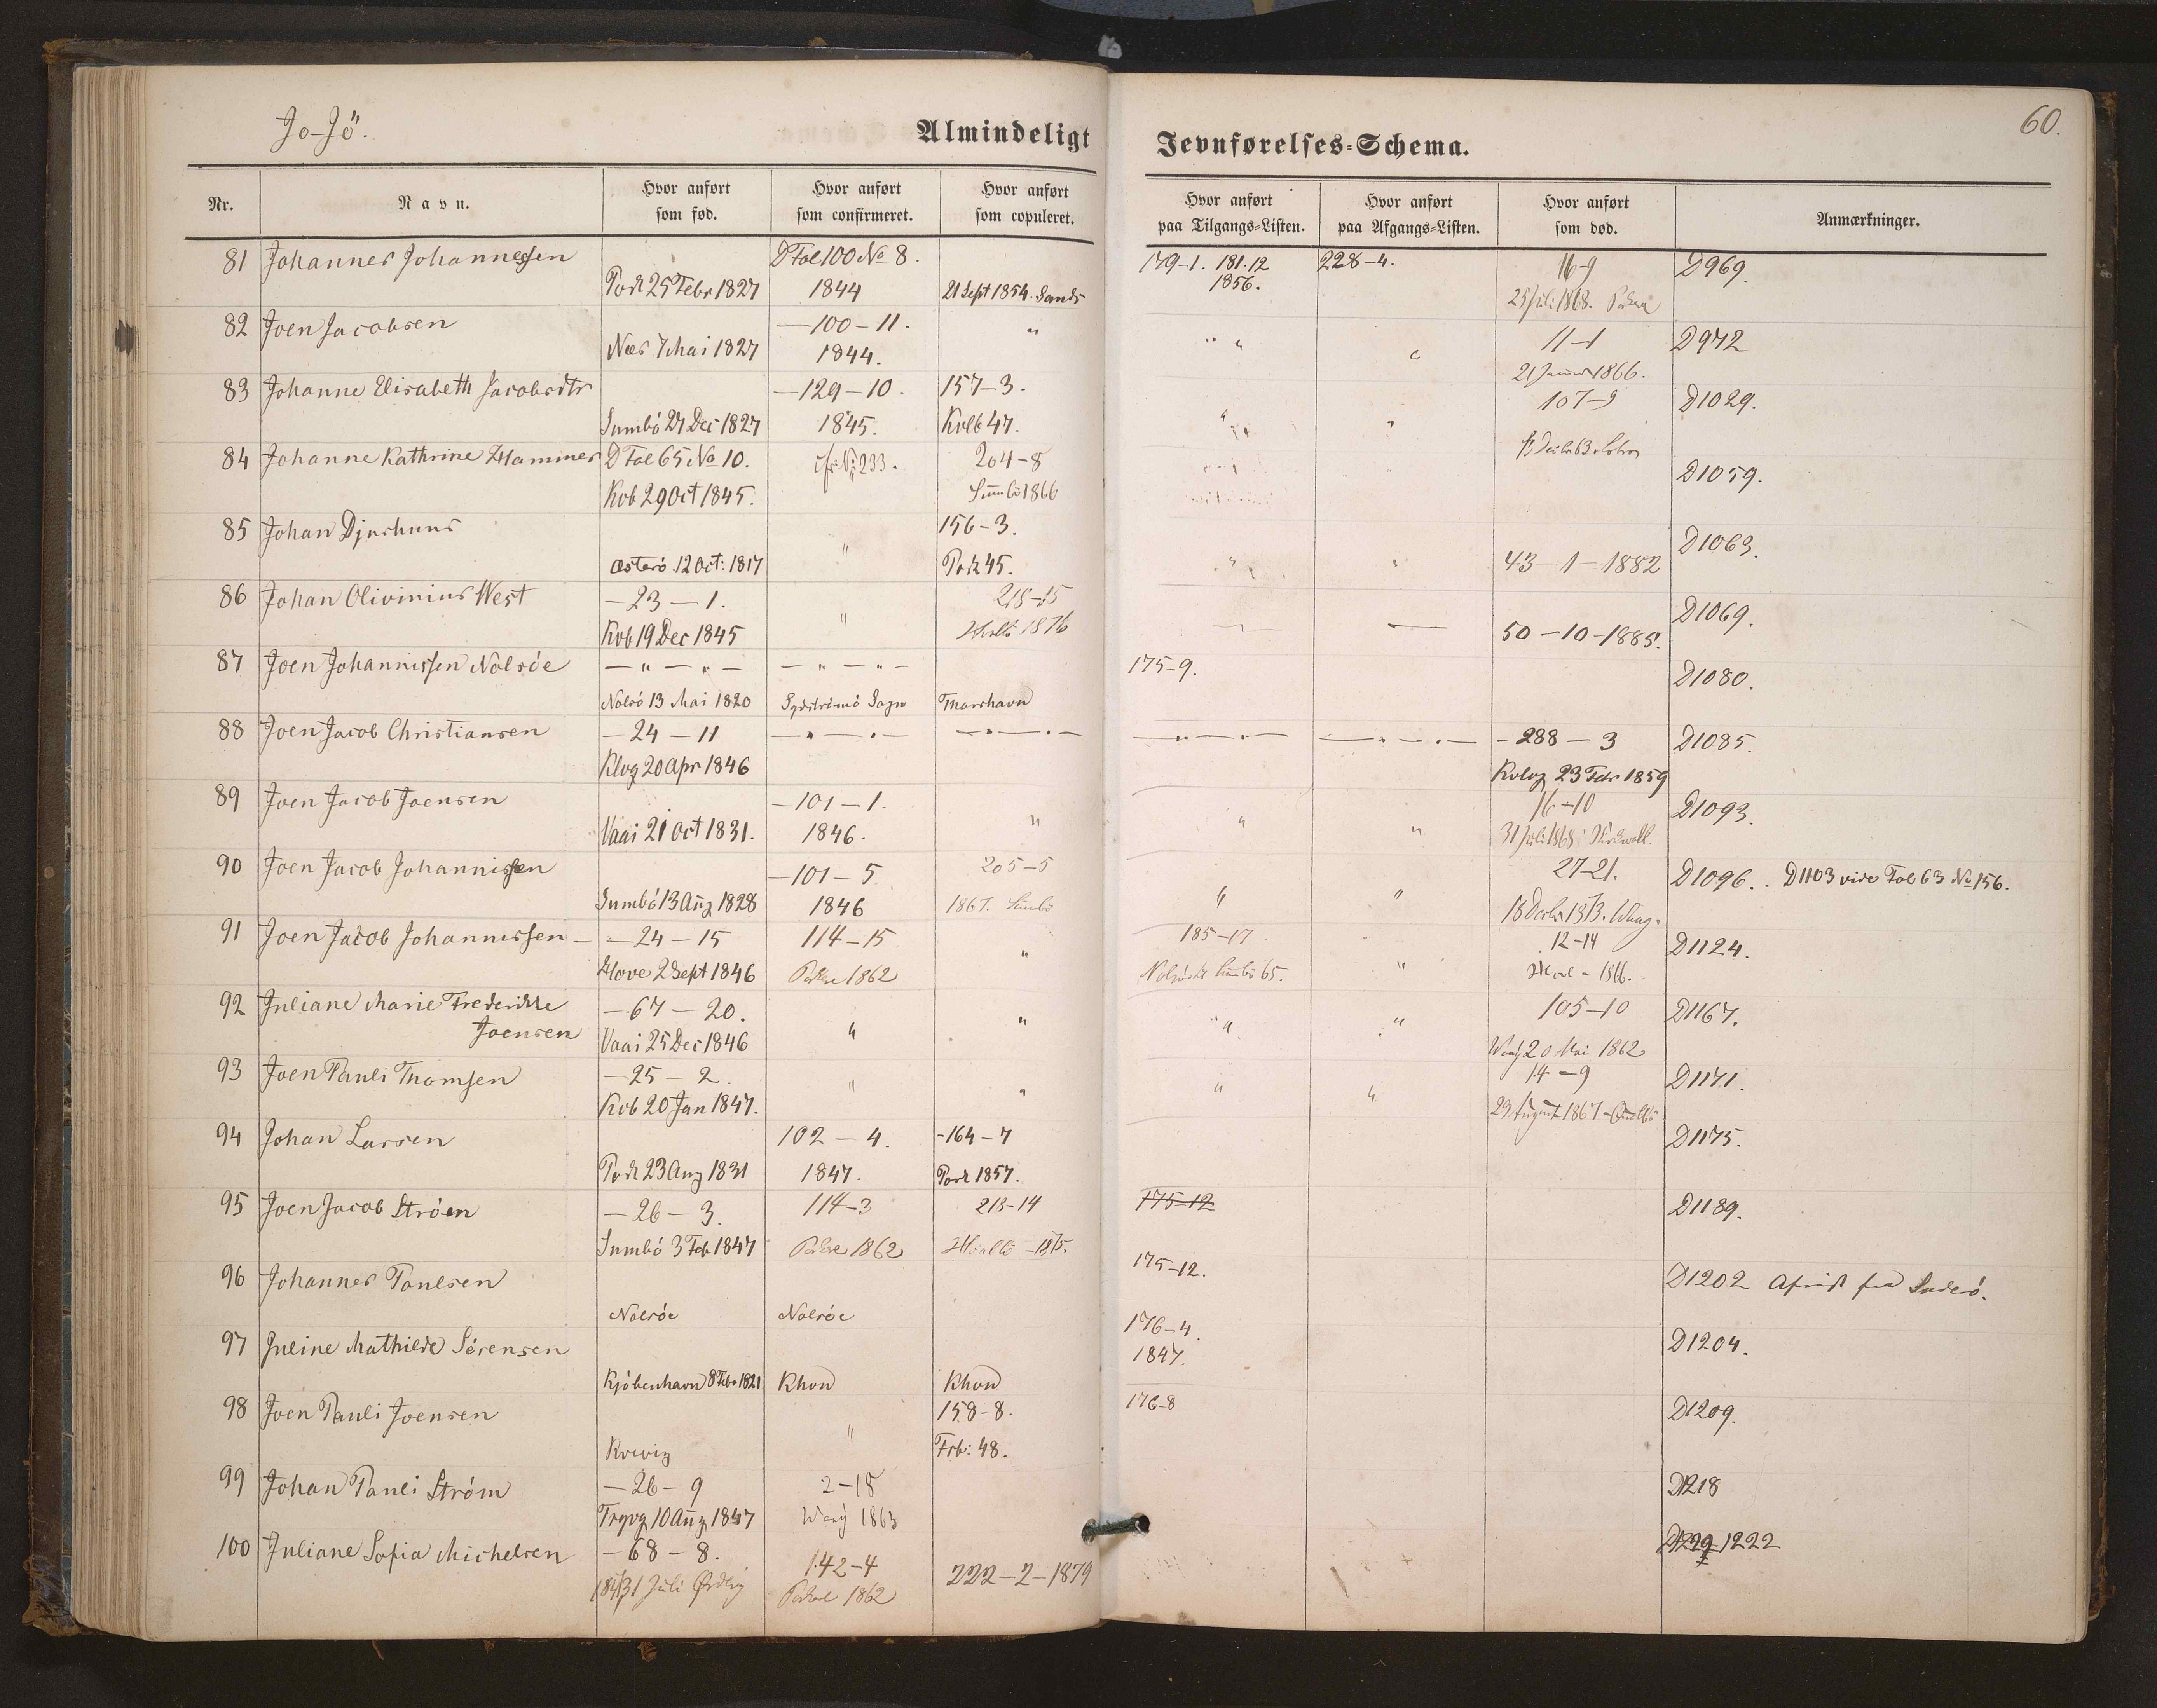 Jo-Jö.
Almindeligt
Jevnførelses=Schema.
60.
Nr.
Navn.
Hvor anført som fød.
Hvor anført som confirmeret.
Hvor anført som copuleret.
Hvor anført paa Tilgangs=Listen.
Hvor anført paa Afgangs=Listen.
Hvor anført som død.
Anmærkninger.
81 Johannes Johannessen D Fol 100 No 8. 179-1. 181.12 228-4. 16-9 D969.
25 Febr 1827 1844 21 Sept 1854. Sands 1856. 25 Juli 1868.
82 Joen Jacobsen —100-11. " " " 11-1 D972
Næs 7 Mai 1827 1844. 21 1866.
83 Johanne Elisabeth Jacobsdtr —129-10. 157-3. " " 107-9 D1029.
Sumbö 27 Dec 1827 1845. Kvlb 47.
84 Johanne Kathrine Hammer D Fol 65 No 10. 233. 204-8 D1059.
Kvb 29 Oct 1845. Sumbö 1866
85 Johan Djurhuus 156-3. D1063.
Østerö 12 Oct: 1817 " 45. " " 43-1-1882
86 Johan Olivinius West —23—1. " 218-15 — — D1069.
Kvb 19 Dec 1845 1876 50-10-1885.
87 Joen Johannissen Nolsöe — " — " — — " — " — 175-9. D1080.
Nolsö 13 Mai 1820 Sydströmö Sogn Thorshavn
88 Joen Jacob Christiansen —24—11 — " — " — — " — " — — " — " — — " — " — -288-3 D1085.
20 Apr 1846 23 Febr 1859
89 Joen Jacob Joensen —101—1. " " " 16-10 D1093.
Vaai 21 Oct 1831. 1846. 31 Juli 1868
90 Joen Jacob Johannissen —101—5 205-5 " " 27-21. D1096. . D1103 vide Fol 63 No 156.
Sumbö 13 Aug 1828 1846 1867. Sumbö 18 1873.
91 Joen Jacob Johannissen —24—15 114-15 " 185-17 " 12-14 D1124.
Hove 2 Sept 1846 1862 Sumbö 65. 1866.
92 Juliane Marie Frederikke —67—20. " " " " 105-10 D1167.
Joensen Vaai 25 Dec 1846 20 Mai 1862
93 Joen Pauli Thomsen —25-2. " " " " 14-9 D1171.
Kvb 20 Jan 1847. 29 August 1867
94 Johan Larsen 102-4. -164-7 D1175.
23 Aug 1831 1847. 1857.
95 Joen Jacob Strøm —26-3. 114-3 213-14 175-12 D1189.
Sumbö 3 Feb 1847 1862 1875.
96 Johannes Poulsen 175-12. D1202 fra Suderö.
Nolsöe Nolsöe
97 Juline Mathilde Sörensen 176-4. D1204.
Kjöbenhavn 8 Febr 1821 Khvn Khvn 1847.
98 Joen Pauli Joensen " 158-8. 176-8 D1209.
Frb: 48.
99 Johan Pauli Ström —26-9 2-18 D1218
10 Aug 1847 1863
100 Juliane Sofia Michelsen —68-8. 142-4 222-2-1879 1222
31 Juli 1862